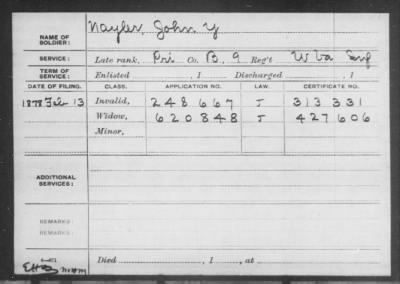 NAME OF SOLDIER: Nayler, John Y
SERVICE: Late rank, Pri Co. B, 9 Reg't W Va Inf
TERM OF SERVICE: Enlisted , 1 Discharged , 1
DATE OF FILING. CLASS. APPLICATION NO. LAW. CERTIFICATE NO.
1878 Feb 13 Invalid, 248 667 J 313 331
Widow, 620848 J 427 606
Minor,
ADDITIONAL SERVICES:
REMARKS:
REMARKS:
Died , 1 , at